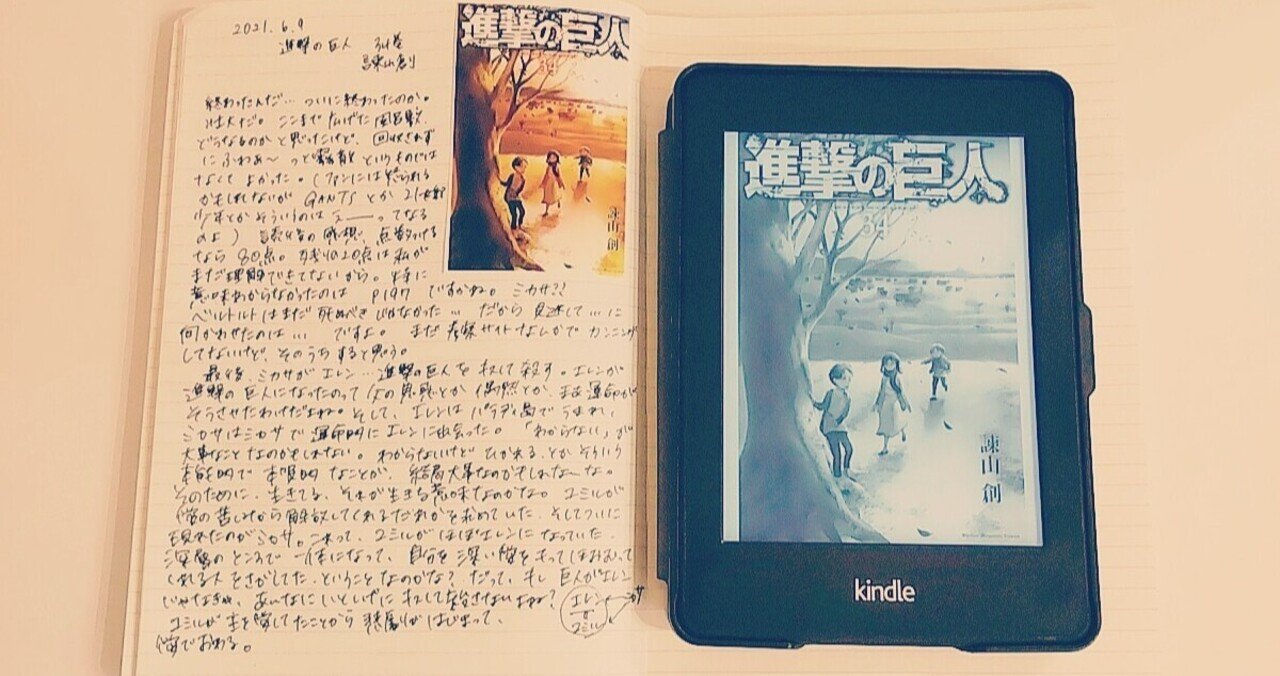 2021.6.9
進撃の巨人 34巻
諫山創
終わったんだ… ついに終わったのか。
壮大だ。ここまで広げた風呂敷、
どうなるのかと思ったけど、回収されず
にふわぁ〜っと霧散というものでは
なくてよかった。(ファンには怒られる
かもしれないが GANTS とか 21世紀
少年とかそういうのは えーーってなる
のよ) 読後の感想、点数つける
なら80点。残りの20点は私が
まだ理解できてないから。特に
意味わからなかったのは P197 ですかね。ミカサ!?
ベルトルトはまだ死ぬべきじゃなかった… だから見逃して…に
向かわせたのは… ですよ。まだ考察サイトなんかでカンニング
してないけど、そのうちすると思う。
最後 ミカサがエレン…進撃の巨人を 殺す。エレンが
進撃の巨人になったのって 父の思惑とか 偶然とか、まぁ運命が
そうさせたわけだよね。そして、エレンは パラディ島でうまれ、
ミカサはミカサで運命的にエレンに出会った。「わからない」が
大事なことなのかもしれない。わからないけどひかれる、とかそういう
本能的で本質的なことが、結局大事なのかもしれないな。
そのために、生きてる、それが生きる意味なのかな。ユミルが
愛の苦しみから解放してくれるだれかを求めていた、そしてついに
現れたのがミカサ。これって、ユミルがほぼエレンになっていた、
深層のところで一体になって、自分を深い愛をもって
くれる人をさがしてた、ということなのかな? だって、もし巨人がエレン
じゃなきゃ、あんなに
エレン
=
ユミル
ユミルが王を愛してたことから悲劇がはじまって、
愛でおわる。
進撃の巨人
諫山創
進撃の巨人
34
諫山創
kindle